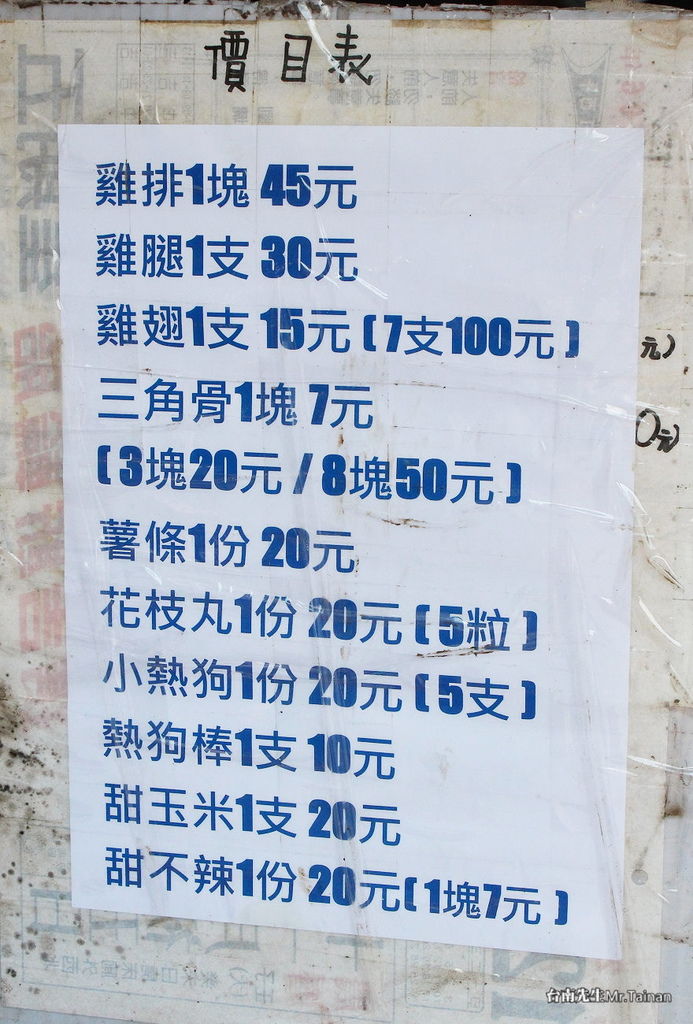 價目表
雞排1塊 45元
雞腿1支 30元
雞翅1支 15元 ( 7支100元 )
元)
三角骨1塊 7元
0元)
( 3塊20元 / 8塊50元 )
薯條1份 20元
花枝丸1份 20元 ( 5粒 )
小熱狗1份 20元 ( 5支 )
熱狗棒1支 10元
甜玉米1支 20元
甜不辣1份 20元( 1塊7元 )
台南先生Mr.Tainan